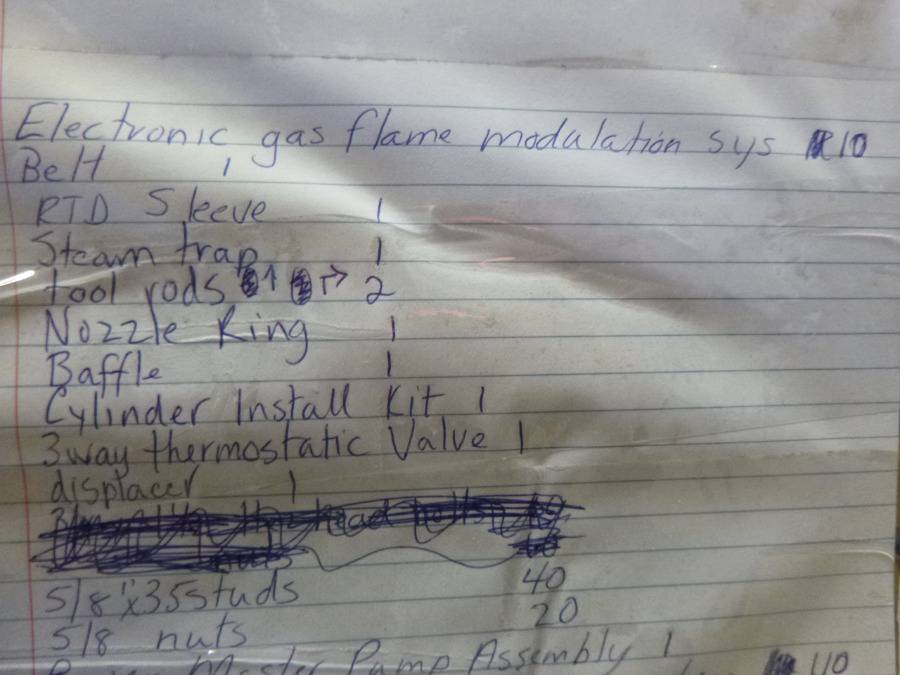 Electronic gas flame modulation sys 10
Belt 1
RTD Sleeve 1
Steam trap 1
tool rods 2
Nozzle Ring 1
Baffle 1
Cylinder Install Kit 1
3way thermostatic Valve 1
displacer 1
head
5/8"x35studs 40
5/8 nuts 20
Master Pump Assembly 1
110